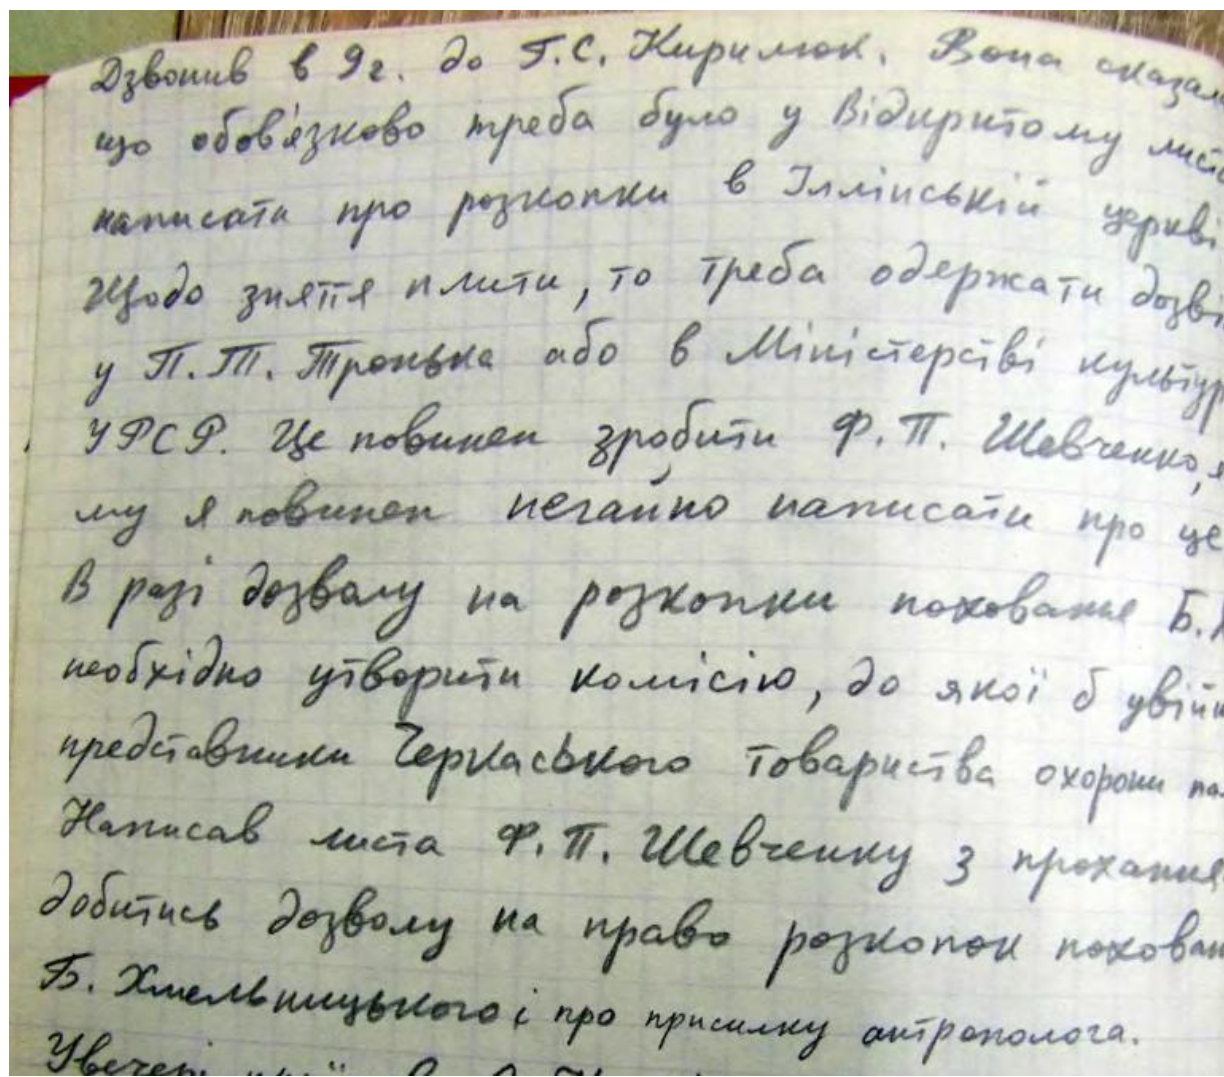 Дзвонив в 9г. до Г.С. Кирилюк. Вона сказал
що обов'язково треба було у Відкритому лист
написати про розкопки в Іллінській церкві
Щодо зняття плити, то треба одержати дозві
у П.Т. Тронька або в Міністерстві культур
УРСР. Це повинен зробити Ф.П. Шевченко, я
му я повинен негайно написати про це
В разі дозволу на розкопки поховання Б.
необхідно утворити комісію, до якої б увій
представники Черкаського товариства охорони па
Написав листа Ф.П. Шевченку з прохання
добитись дозволу на право розкопок похован
Б. Хмельницького і про присилку антрополога.
Увечері